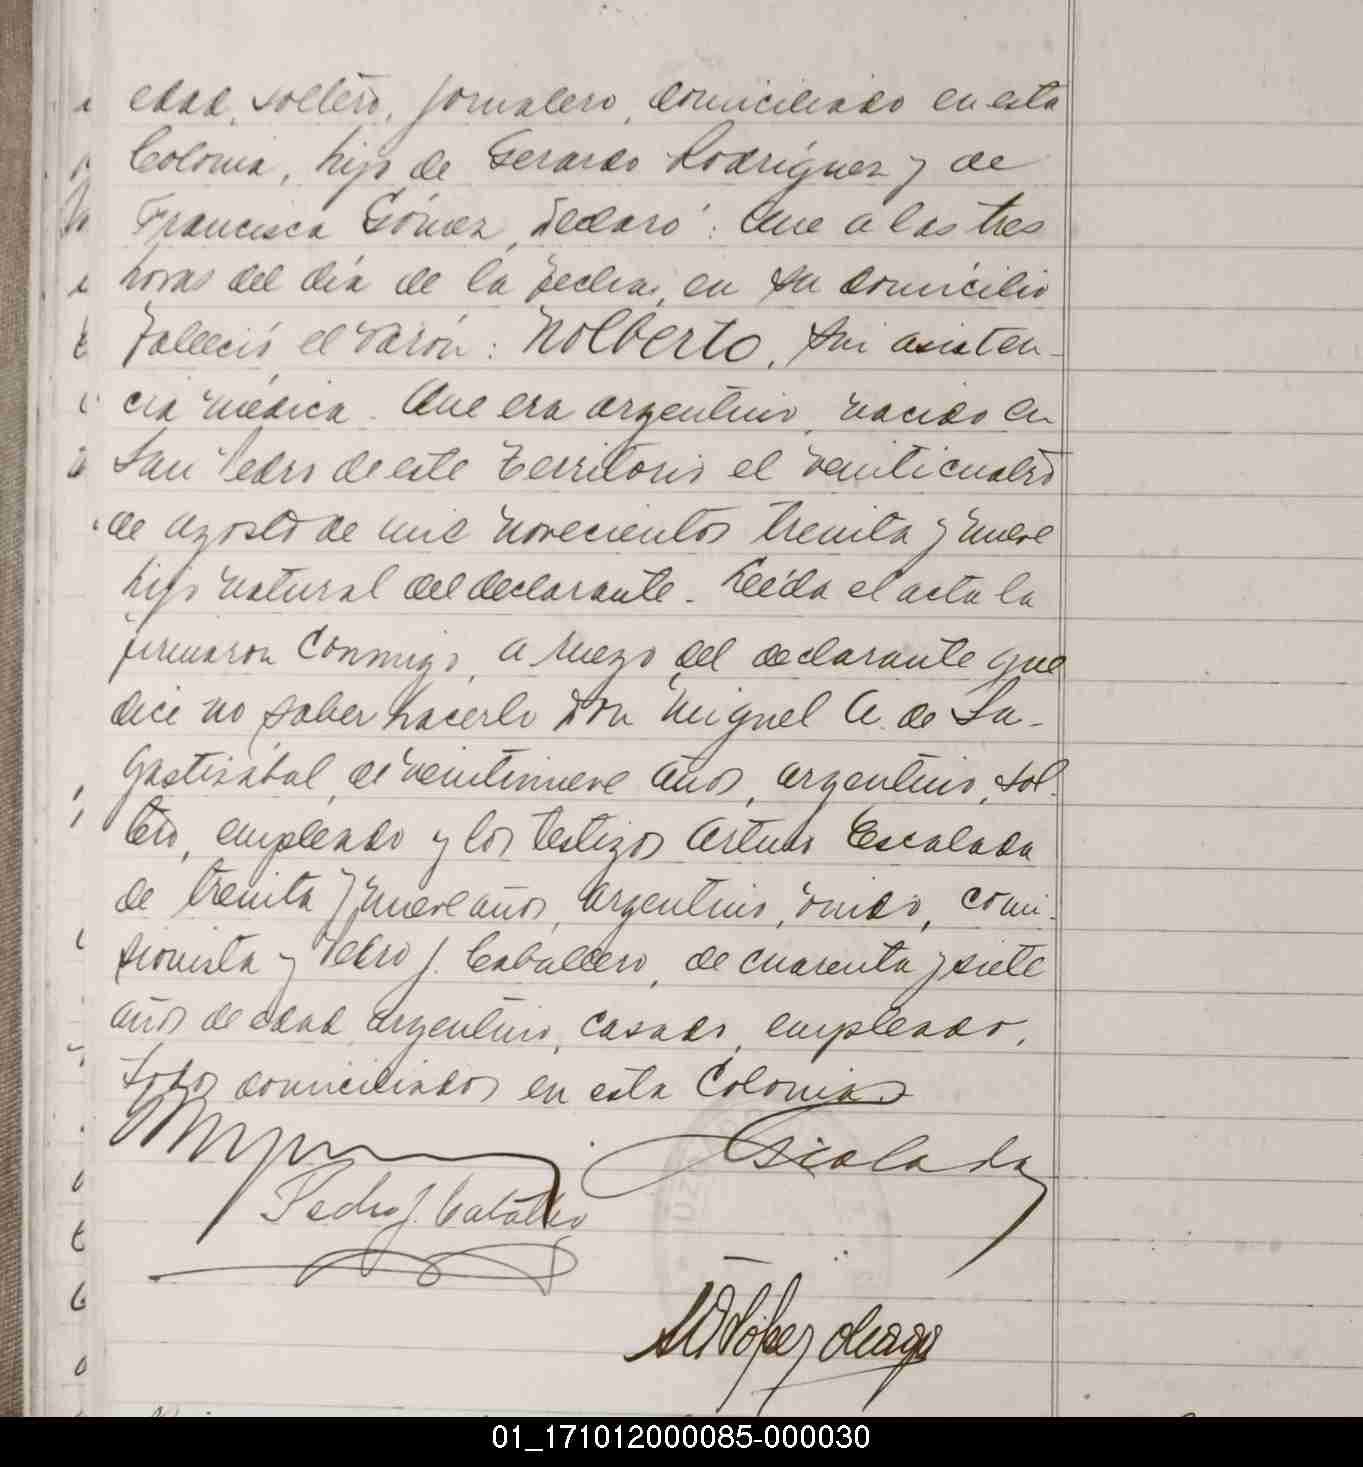 edad, soltero, jornalero, domiciliado en esta
Colonia, hijo de Gerardo Rodríguez y de
Francisca Gómez, declaró: Que a las tres
horas del día de la fecha, en su domicilio
falleció el varón: Nolberto, sin asisten-
cia médica. Que era argentino, nacido en
San Pedro de este Territorio el veinticuatro
de agosto de mil novecientos treinta y nueve
hijo natural del declarante. Leída el acta la
firmaron conmigo, a ruego del declarante que
dice no saber hacerlo Don Miguel A. de Sa-
gastizábal, de veintinueve años, argentino, sol-
tero, empleado y los testigos Arturo Escalada
de treinta y nueve años, argentino, viudo, comi-
sionista y Pedro J. Caballero, de cuarenta y siete
años de edad, argentino, casado, empleado,
todos domiciliados en esta Colonia
Escalada
Pedro J. Caballero
López
01_171012000085-000030